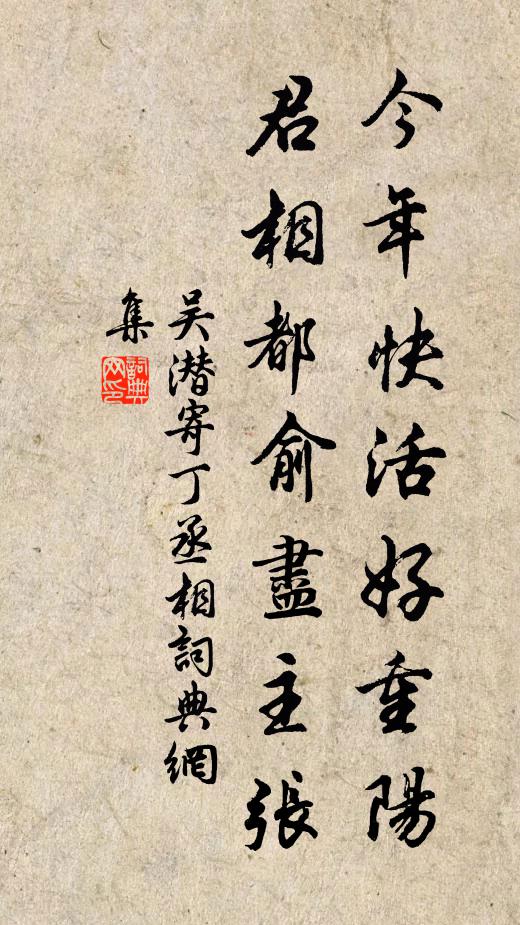 今年快活好重陽
君相都俞盡主張
吴潛寄丁丞相詞典網
集
詞典
网印